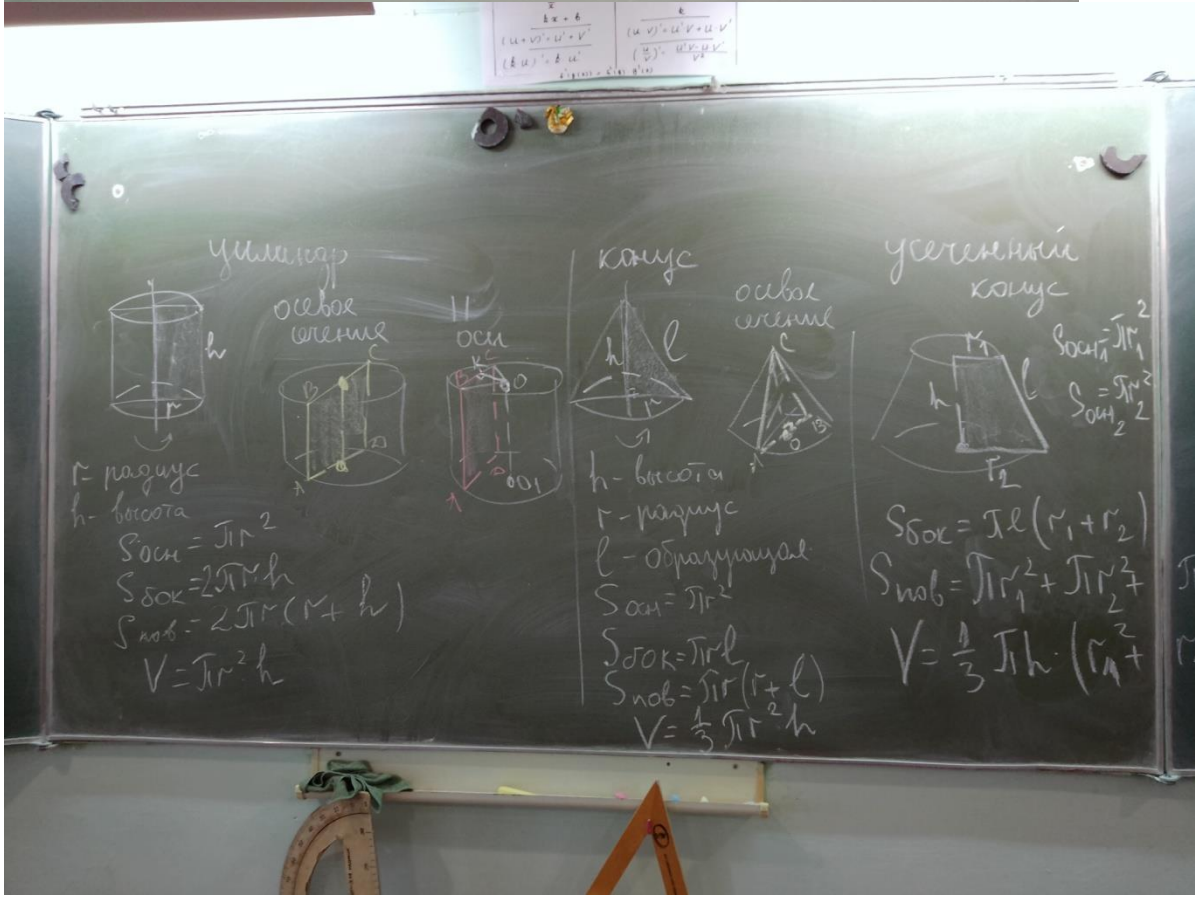 kx + b
(u + v)' = u' + v'
(k u)' = k u'
(u v)' = u'v + u·v'
(u/v)' = u'v - u·v' / v²
цилиндр
осевое
сечение
||
оси
h
r
B
C
A
D
O
B
C
K
O
A
D
O₁
r - радиус
h - высота
Sосн = πr²
Sбок = 2πrh
Sпов = 2πr(r + h)
V = πr²·h
конус
осевое
сечение
h
l
r
C
A
O
B
h - высота
r - радиус
l - образующая
Sосн = πr²
Sбок = πrl
Sпов = πr(r + l)
V = 1/3 πr²h
усеченный
конус
r₁
h
l
r₂
Sосн₁ = πr₁²
Sосн₂ = πr₂²
Sбок = πl(r₁ + r₂)
Sпов = πr₁² + πr₂² +
V = 1/3 πh·(r₁² +